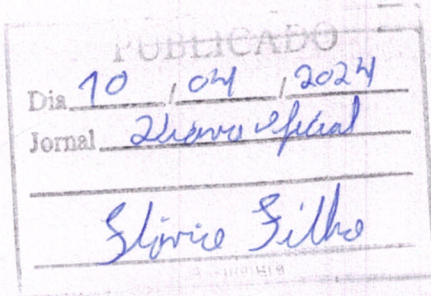 PUBLICADO
Dia 10 / 04 / 2024
Jornal Diário Oficial
Flávio Filho